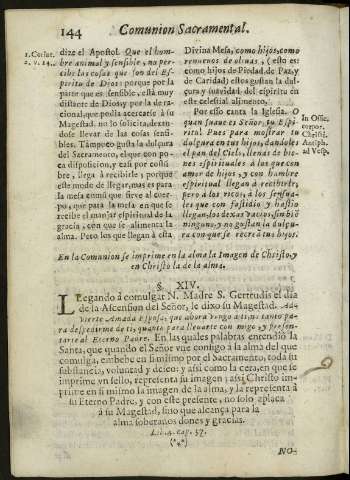 144
Comunion Sacramental.
1. Corint.
2. v. 14.
dize el Apostol. Que el hom-
bre animal y sensible, no per-
cibe las cosas que son del Es-
piritu de Dios: porque por la
parte que es sensible, està muy
distante de Dios, y por la de ra-
cional, que podia acercarse à su
Magestad, no lo solicita, dexan-
dose llevar de las cosas sensi-
bles. Tampoco gusta la dulçura
del Sacramento, el que con po-
ca disposicion, y casi por costũ-
bre, llega à recibirle; porque
este modo de llegar, mas es para
la mesa comũ que sirve al cuer-
po, que para la mesa en que se
recibe el manjar espiritual de la
gracia, con que se alimenta la
alma. Pero los que llegan à esta
Divina Mesa, como hijos, como
renuevos de olivas, (esto es:
como hijos de Piedad, de Paz, y
de Caridad) estos gustan la dul-
çura y suavidad del espiritu en
este celestial alimento.
Por esso canta la Iglesia. O
quan suave es Señor, tu Espi-
ritu! Pues para mostrar tu
dulçura en tus hijos, dandoles
el pan del Cielo, llenas de bie-
nes espirituales à los que con
amor de hijos, y con hambre
espiritual llegan à recibirte,
pero à los ricos, à los sensua-
les que con fastidio y hastio
llegan, los dexas vacios, sin biẽ
ninguno, y no gustan la dulçu-
ra con que se recreã tus hijos.
In Offic.
corpor.
Christi.
Antiph.
ad Vesp.
En la Comunion se imprime en la alma la Imagen de Christo, y
en Christo la de la alma.
§ XIV.
Llegando à comulgar N. Madre S. Gertrudis el dia
de la Ascension del Señor, le dixo su Magestad. Ad-
vierte Amada Esposa, que ahora vengo à ti, no tanto pa-
ra despedirme de ti, quanto para llevarte con migo, y presen-
tarte al Eterno Padre. En las quales palabras entendiò la
Santa, que quando el Señor vne contigo à la alma del que
comulga, embebe en si mismo por el Sacramento, toda su
substancia, voluntad y deseo: y assi como la cera, en que se
imprime vn sello, representa su imagen; assi Christo im-
prime en si mismo la imagen de la alma, y la representa à
su Eterno Padre, y con este presente, no solo aplaca
à su Magestad, sino que alcança para la
alma soberanos dones y gracias.
Lib. 4. cap. 37.
(***)
NO-